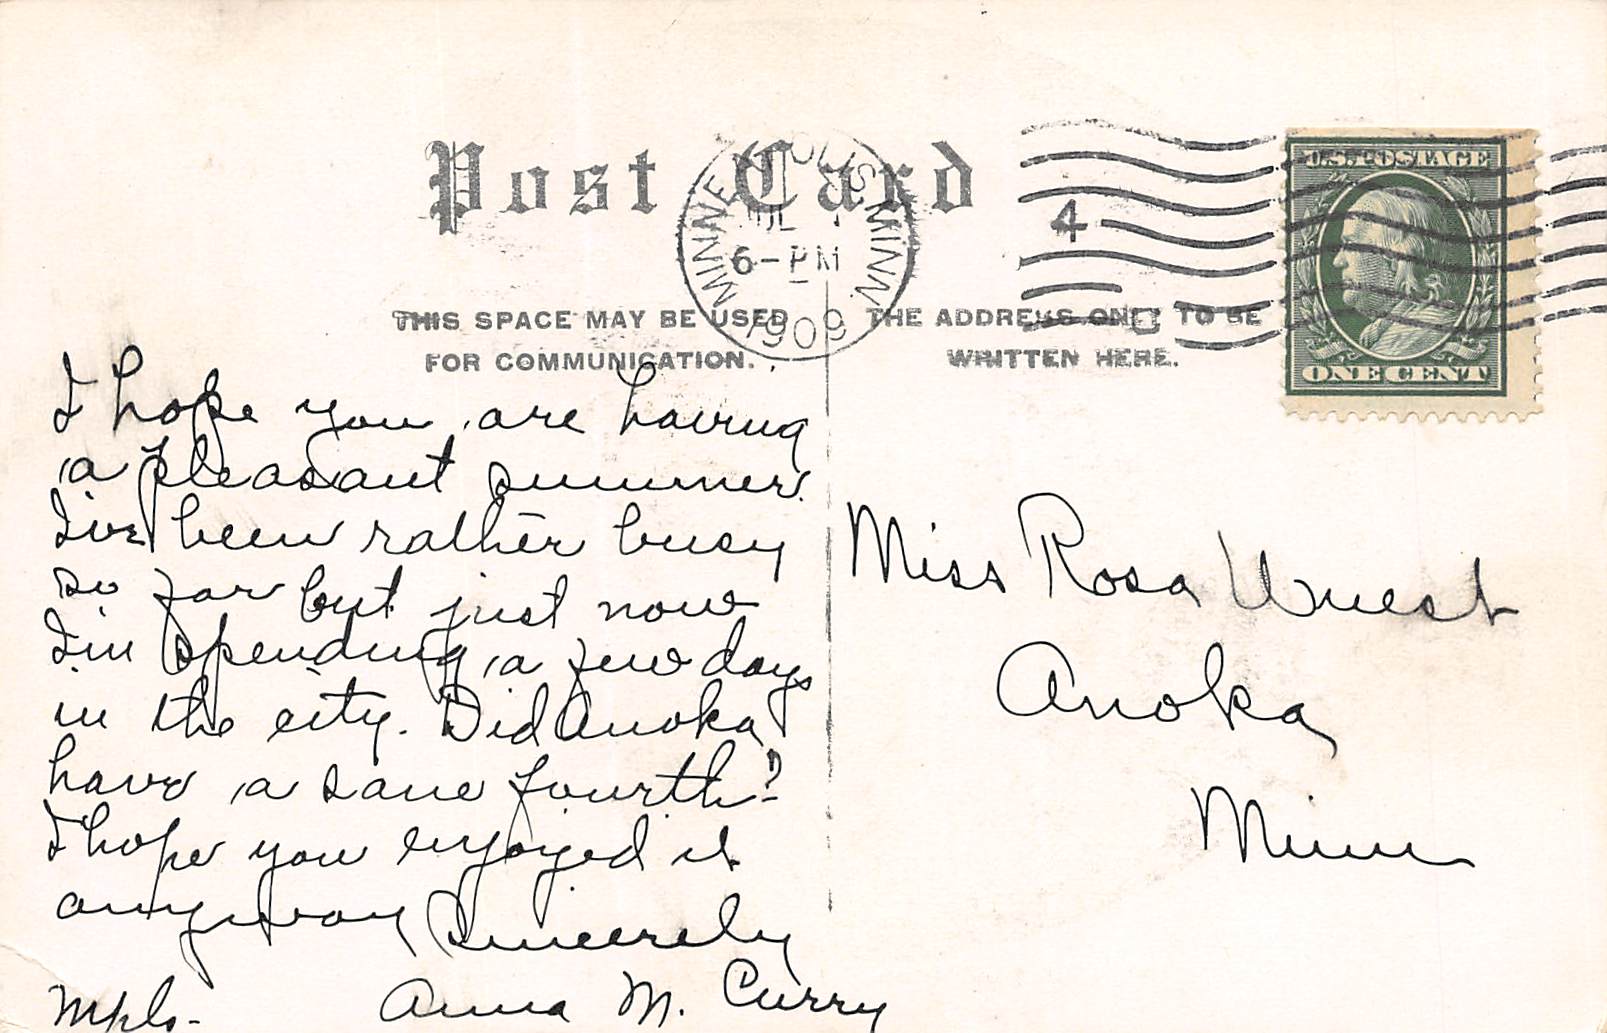 Post Card
MINNEAPOLIS MINN.
JUL
6-PM
1909
4
U.S. POSTAGE
ONE CENT
THIS SPACE MAY BE USED
FOR COMMUNICATION.
THE ADDRESS ONLY TO BE
WRITTEN HERE.
I hope you are having
a pleasant summer.
I've been rather busy
so far but just now
I'm spending a few days
in the city. Did Anoka
have a sane fourth?
I hope you enjoyed it
anyway Sincerely
Mpls- Anna M. Curry
Miss Rosa Wuest
Anoka
Minn